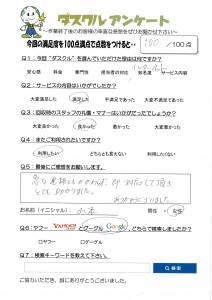 ダスクル アンケート
～作業終了後のお客様の率直な感想をぜひお聞かせ下さい～
今回の満足度を100点満点で点数をつけると・・ 100 /100点
Q1：今回“ダスクル”を選んでいただけた理由は何ですか？
安心感 料金 専門性 担当者の対応 知名度 サービス内容
Q2：サービスの内容はいかがでしたか？
大変満足した 満足した 不満足であった 大変不満足であった
Q3：回収時のスタッフの礼儀・マナーはいかがだったでしょうか？
大変良かった 良かった 不満 大変不満
Q4：またご利用されたいですか？
利用したい どちらとも言えない 利用したくない
Q5：最後にご感想をお願いします。
急な連絡にもかかわらず、即対応して頂き
とても助かりました。
ありがとうございました。
お名前（イニシャル） 男性 ・ 女性
Q6：ヤフー YAHOO! とグーグル Google、どちらで検索しましたか？
□ヤフー □グーグル
Q7：検索キーワードを教えて下さい。
検索
ご協力いただき、誠にありがとうございました。